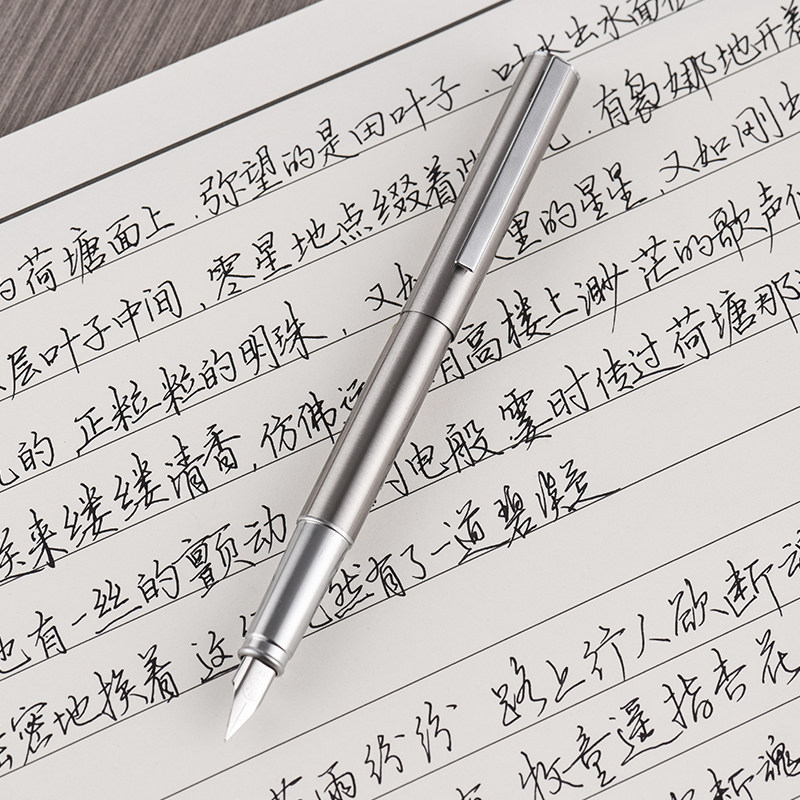 的荷塘面上，弥望的是田田叶子，叶水出水面
层叶子中间，零星地点缀着 ，有袅娜地开着
的，正粒粒的明珠，又如 里的星星，又如刚出
来缕缕清香，仿佛远 高楼上渺茫的歌声
也有一丝的颤动， 电般，霎时传过荷塘那
密地挨着，这 然有了一道碧
雨纷纷 路上行人欲断魂
有 牧童遥指杏花
断魂